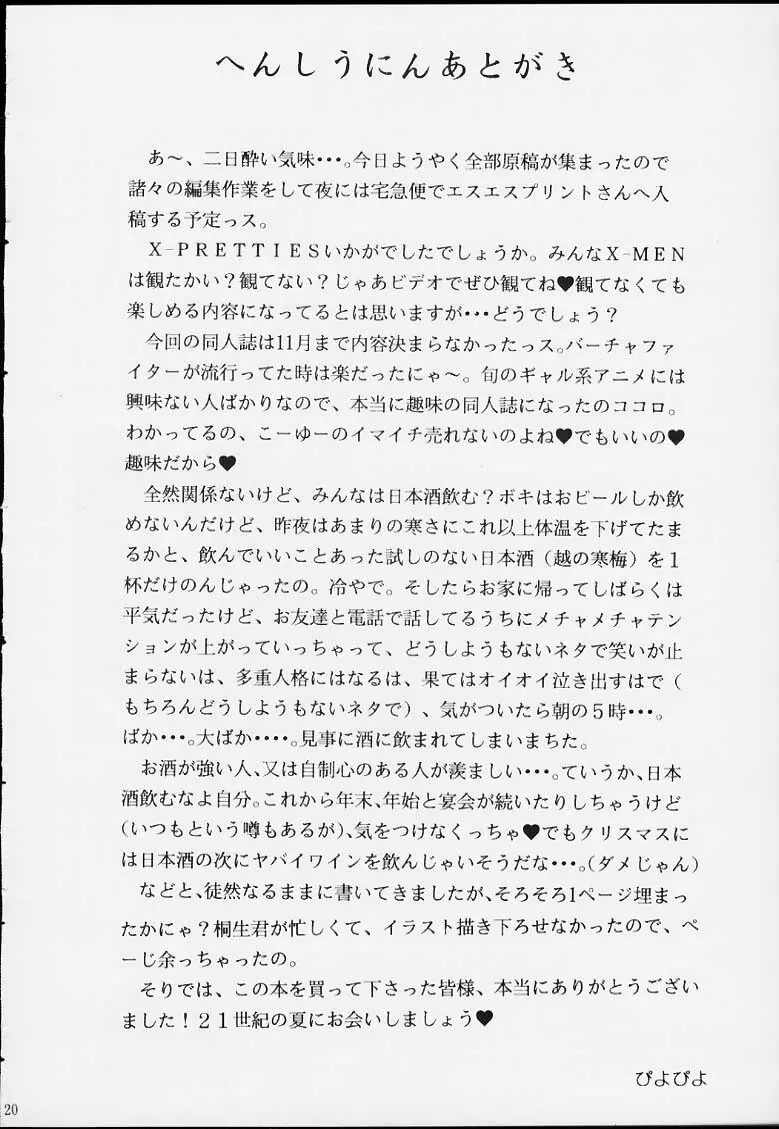 へんしうにんあとがき
あ～、二日酔い気味・・・。今日ようやく全部原稿が集まったので
諸々の編集作業をして夜には宅急便でエスエスプリントさんへ入
稿する予定っス。
Ｘ-ＰＲＥＴＴＩＥＳいかがでしたでしょうか。みんなＸ-ＭＥＮ
は観たかい？観てない？じゃあビデオでぜひ観てね♥観てなくても
楽しめる内容になってるとは思いますが・・・どうでしょう？
今回の同人誌は11月まで内容決まらなかったっス。バーチャファ
イターが流行ってた時は楽だったにゃ～。旬のギャル系アニメには
興味ない人ばかりなので、本当に趣味の同人誌になったのココロ。
わかってるの、こーゆーのイマイチ売れないのよね♥でもいいの♥
趣味だから♥
全然関係ないけど、みんなは日本酒飲む？ボキはおビールしか飲
めないんだけど、昨夜はあまりの寒さにこれ以上体温を下げてたま
るかと、飲んでいいことあった試しのない日本酒（越の寒梅）を１
杯だけのんじゃったの。冷やで。そしたらお家に帰ってしばらくは
平気だったけど、お友達と電話で話してるうちにメチャメチャテン
ションが上がっていっちゃって、どうしようもないネタで笑いが止
まらないは、多重人格にはなるは、果てはオイオイ泣き出すはで（
もちろんどうしようもないネタで）、気がついたら朝の５時・・・。
ばか・・・。大ばか・・・・。見事に酒に飲まれてしまいまちた。
お酒が強い人、又は自制心のある人が羨ましい・・・。ていうか、日本
酒飲むなよ自分。これから年末、年始と宴会が続いたりしちゃうけど
（いつもという噂もあるが）、気をつけなくっちゃ♥でもクリスマスに
は日本酒の次にヤバイワインを飲んじゃいそうだな・・・。（ダメじゃん）
などと、徒然なるままに書いてきましたが、そろそろ1ページ埋まっ
たかにゃ？桐生君が忙しくて、イラスト描き下ろせなかったので、ペ
ーじ余っちゃったの。
そりでは、この本を買って下さった皆様、本当にありがとうござい
ました！２１世紀の夏にお会いしましょう♥
ぴよぴよ
20